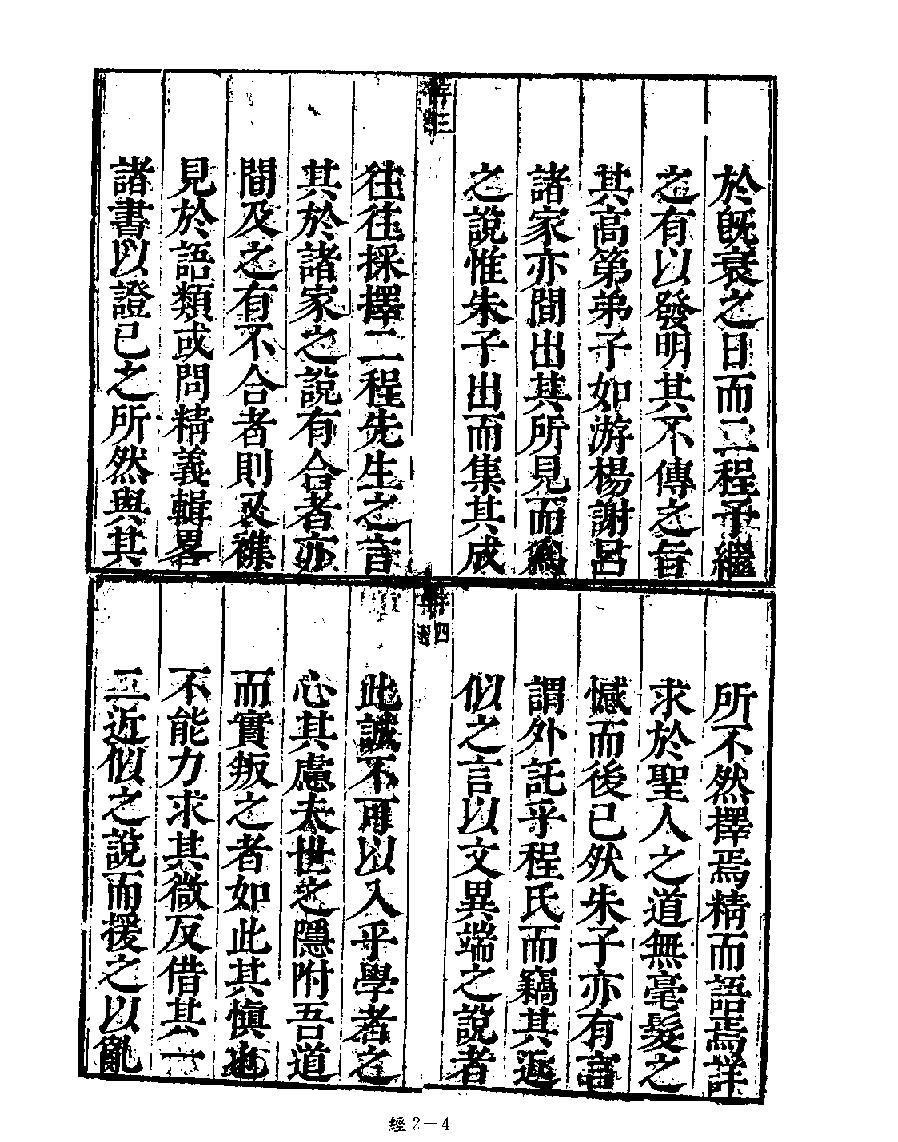 於旣衰之日而二程子繼
之有以發明其不傳之旨
其高第弟子如游楊謝呂
諸家亦間出其所見而爲
之說惟朱子出而集其成
序三
往往採擇二程先生之言
其於諸家之說有合者亦
間及之有不合者則又雜
見於語類或問精義輯畧
諸書以證已之所然與其
所不然擇焉精而語焉詳
求於聖人之道無毫髮之
憾而後已然朱子亦有言
謂外託乎程氏而竊其近
似之言以文異端之說者
序四
此誠不可以入乎學者之
心其慮夫世之隱附吾道
而實叛之者如此其愼也
不能力求其微反借其一
二近似之說而援之以亂
經2－4